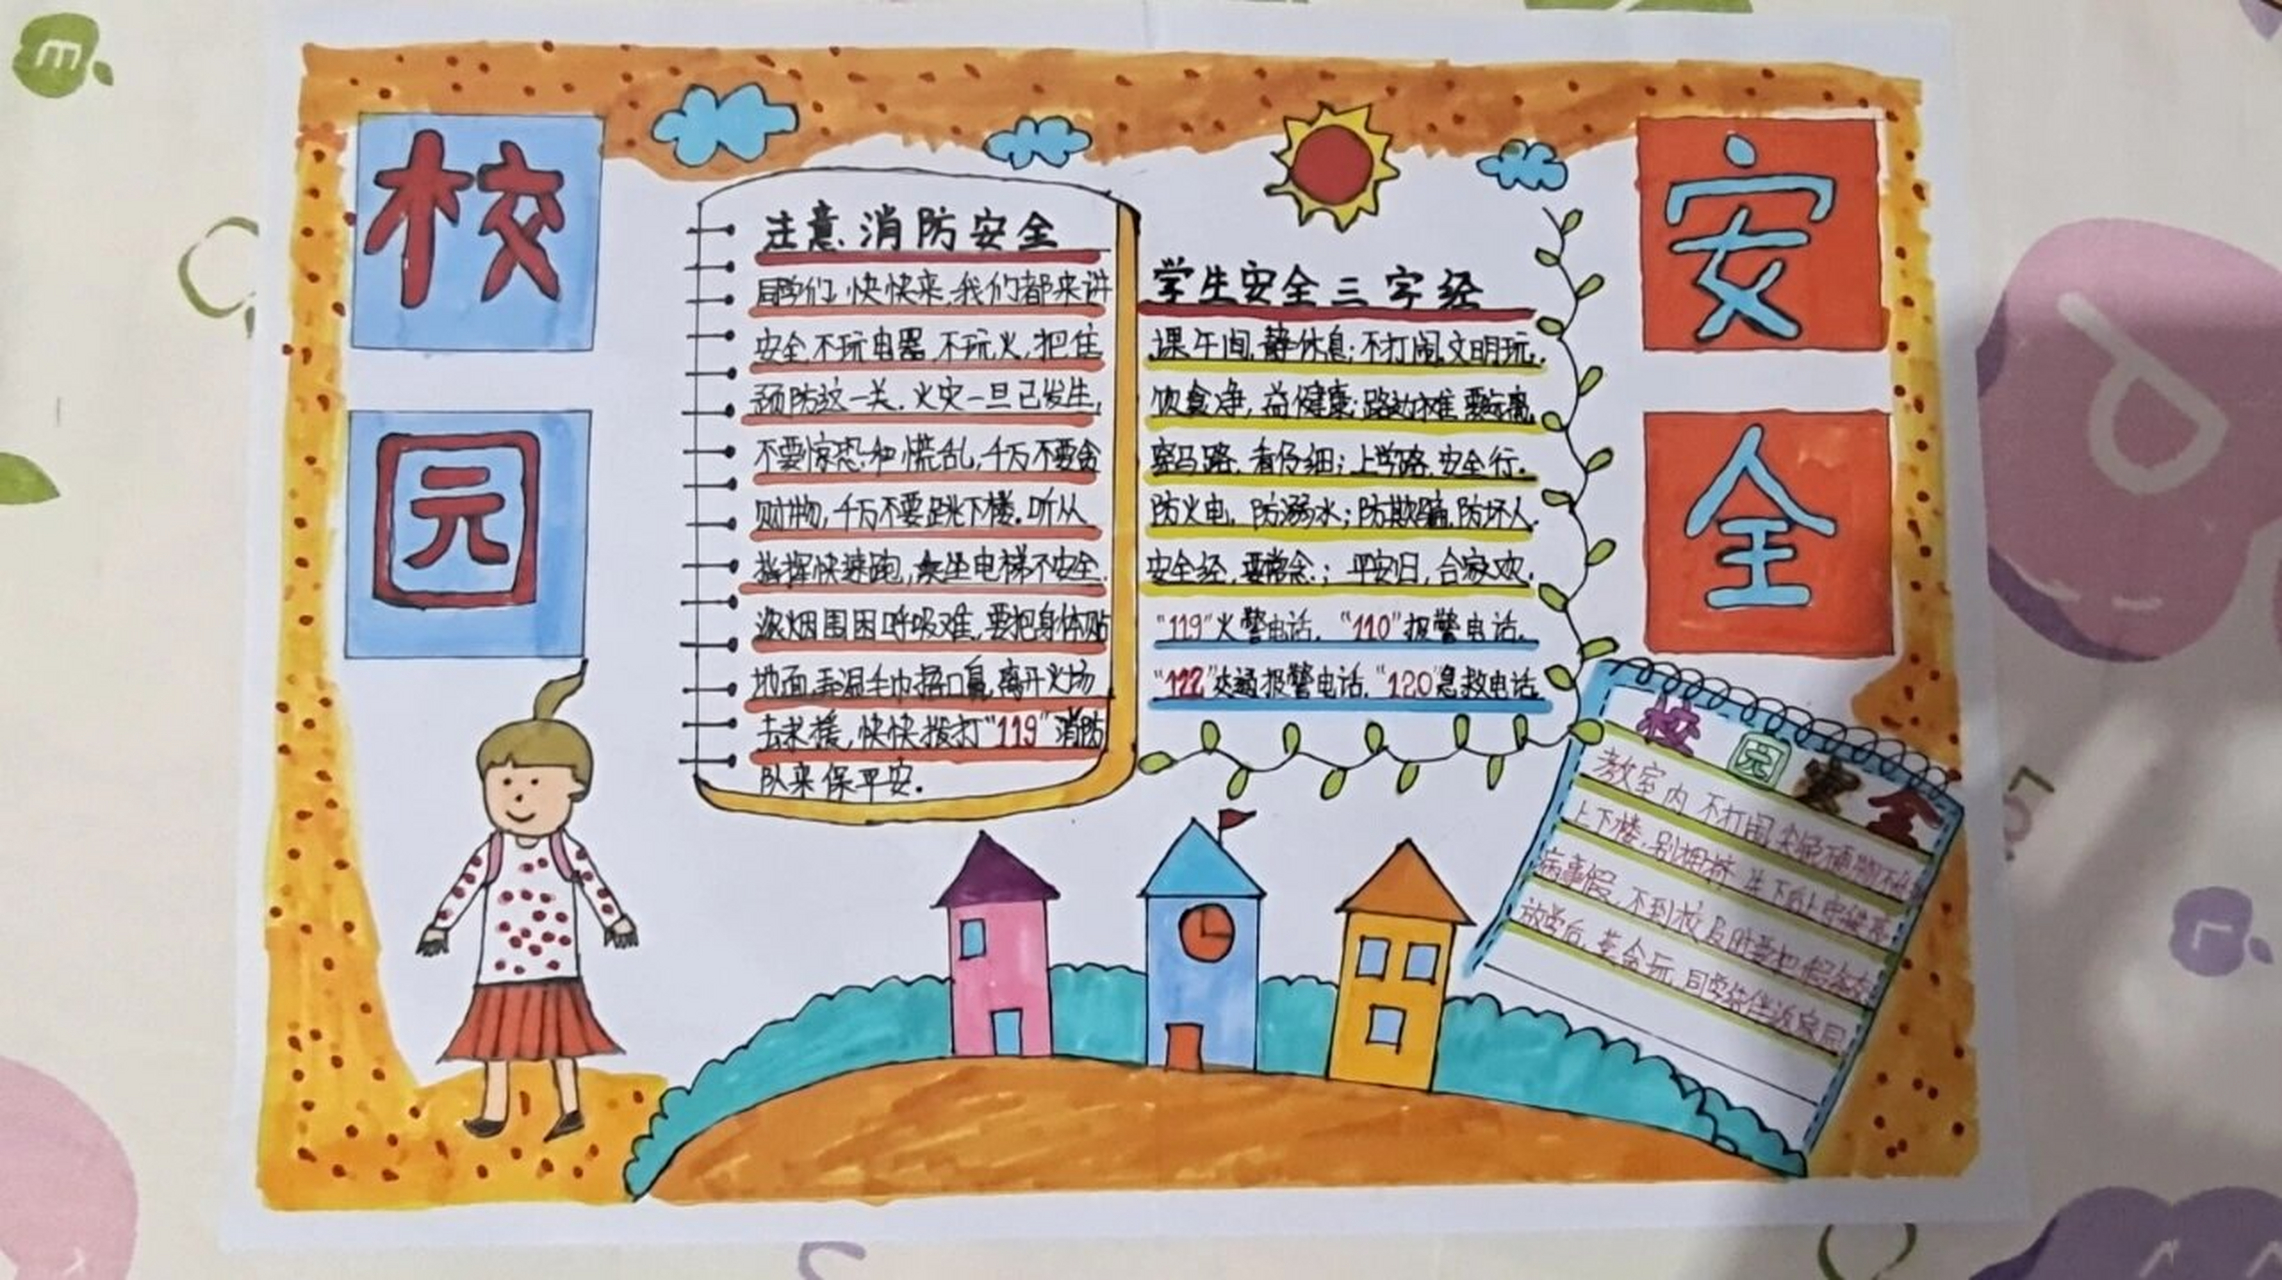 校
园
安
全
注意消防安全
同学们,快快来,我们都来讲
安全,不玩电器,不玩火,把住
预防这一关.火灾一旦已发生,
不要惊恐和慌乱,千万不要贪
财物,千万不要跳下楼.听从
指挥快速跑,乘坐电梯不安全.
浓烟围困呼吸难,要把身体贴
地面,弄湿毛巾捂口鼻,离开火场
去求援,快快拨打“119”消防
队来保平安.
学生安全三字经
课午间,静休息;不打闹,文明玩.
饮食净,益健康;路边摊,要远离.
穿马路,看仔细;上学路,安全行.
防火电,防溺水;防欺骗,防坏人.
安全经,要常念.;平安归,合家欢.
“119”火警电话,“110”报警电话,
“122”交通报警电话,“120”急救电话.
校园安全
教室内,不打闹,尖锐硬物不
上下楼,别拥挤
病事假,不到校,及时要把假条
放学后,莫贪玩,同学结伴返家园